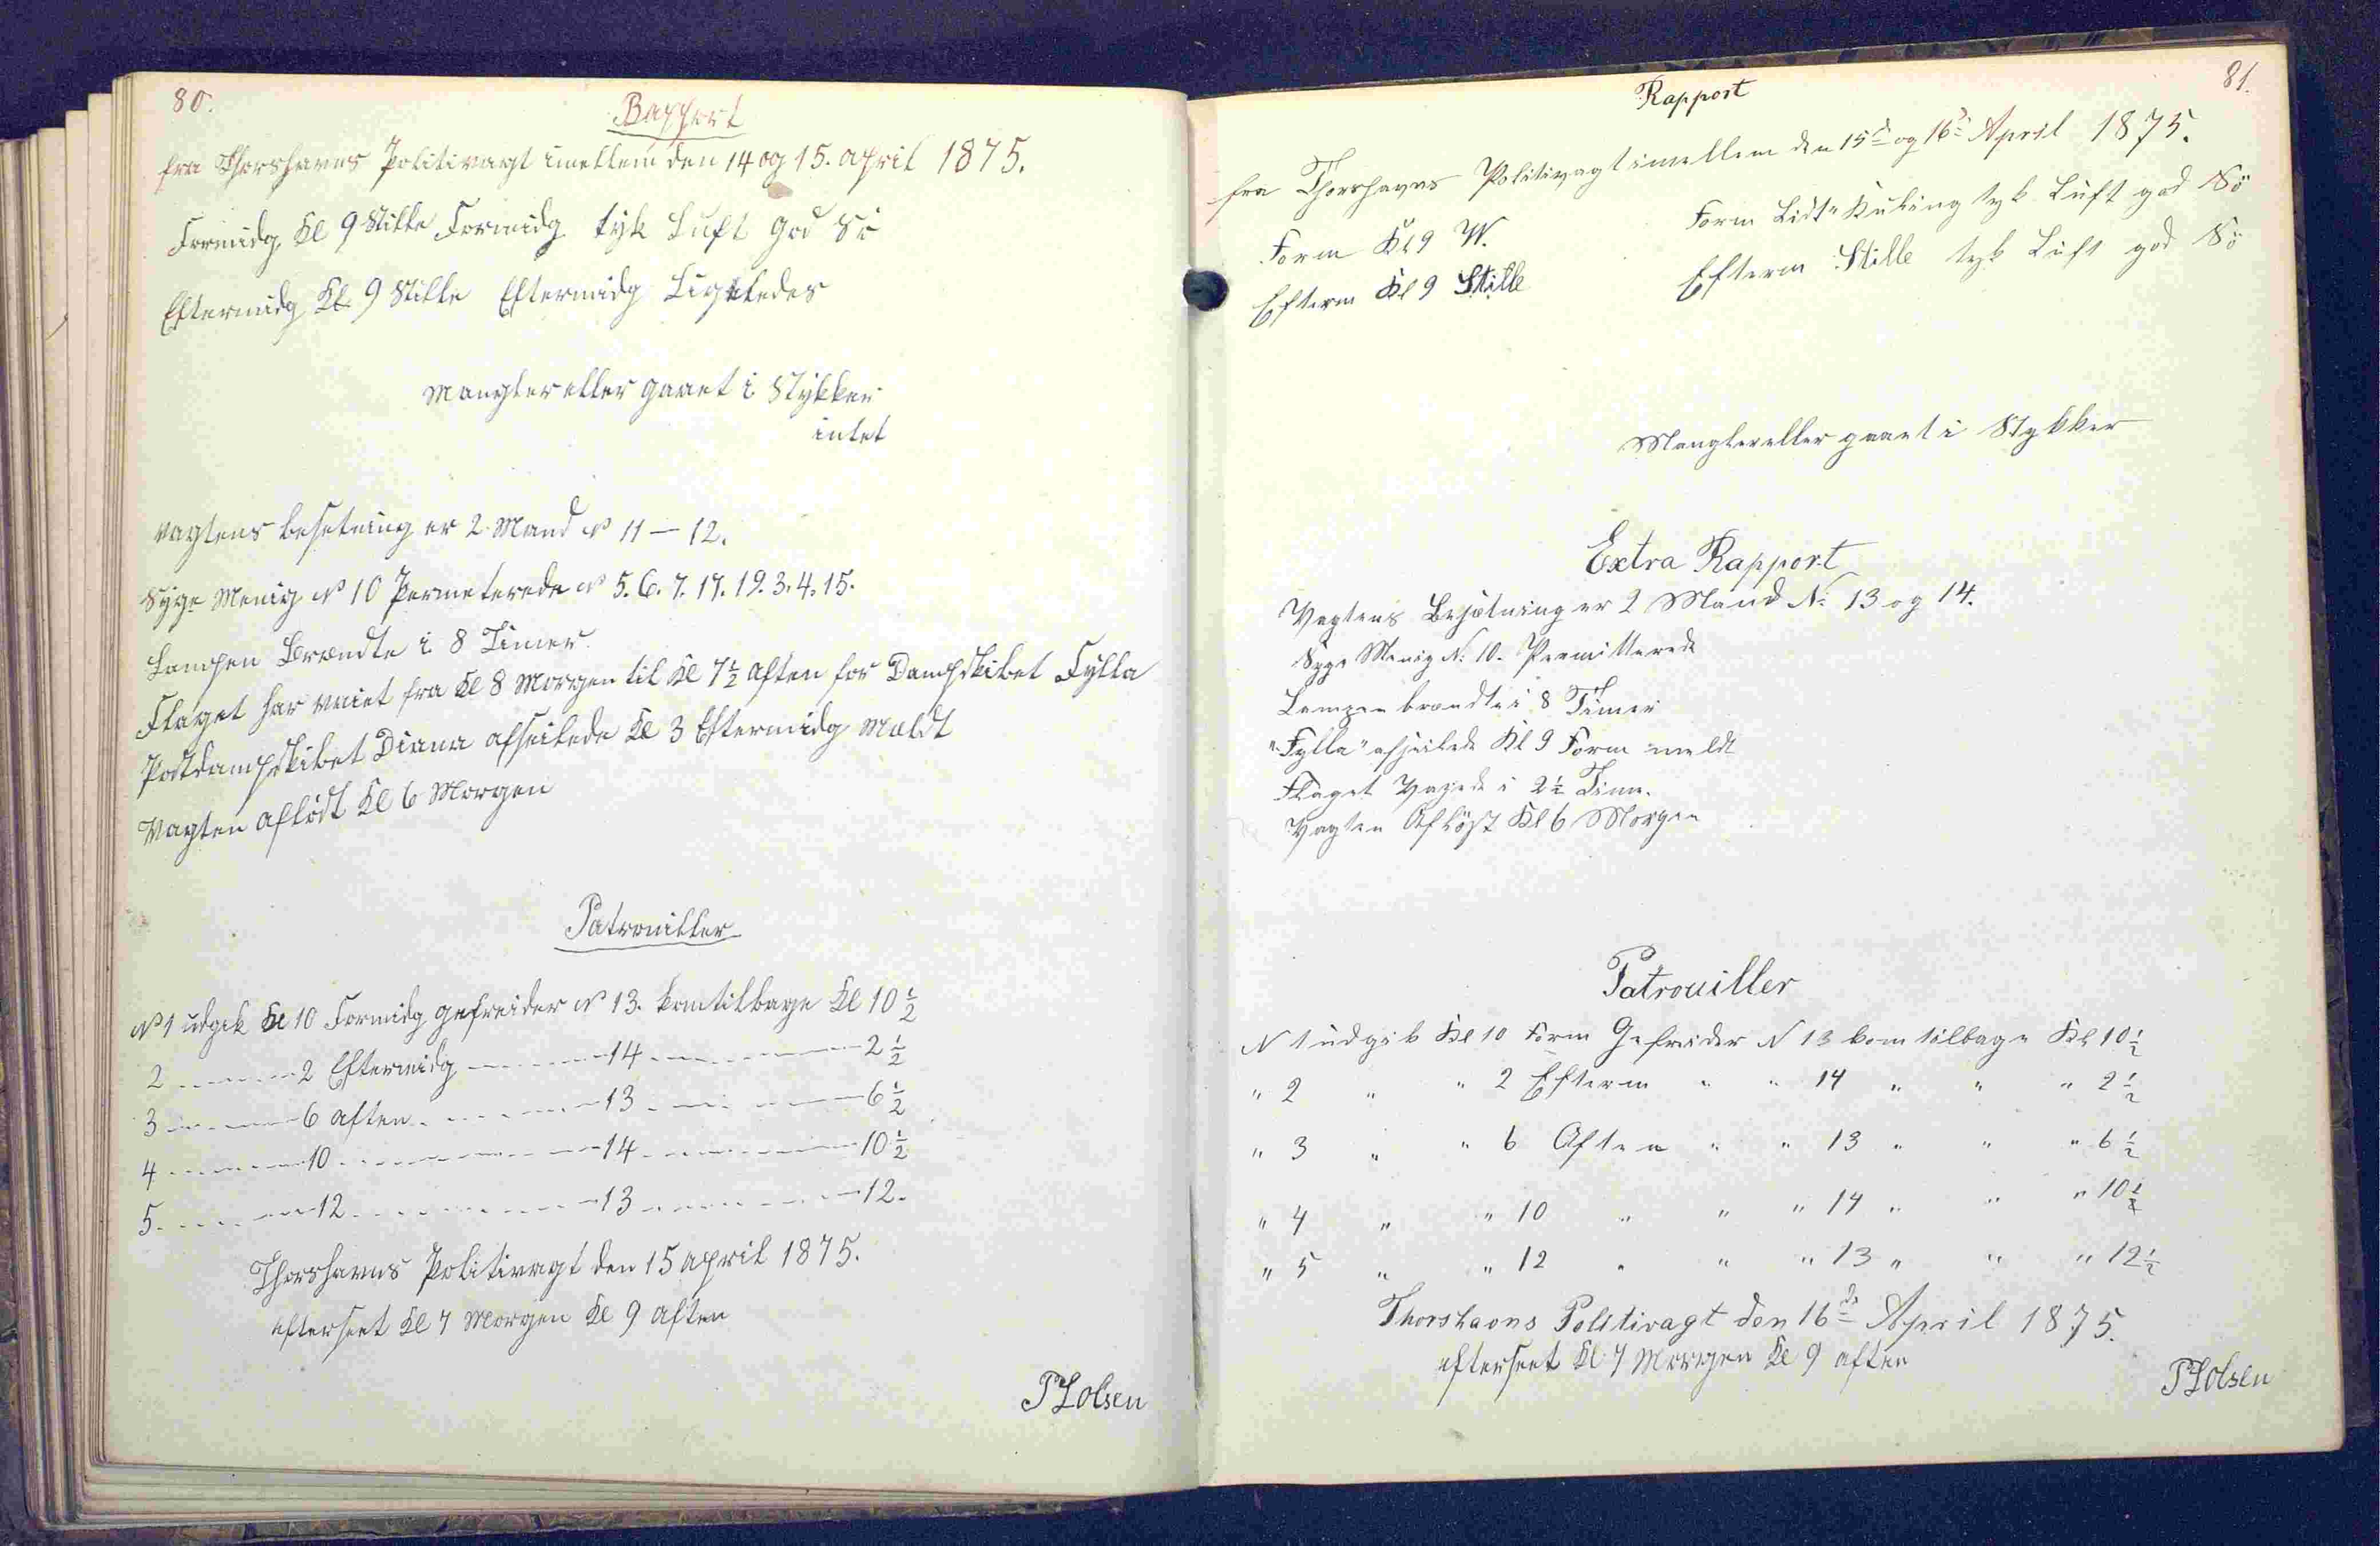 80.
Rapport
fra Thorshavns Politivagt imellem den 14 og 15. april 1875.
Formidg Kl 9 Stille Formidg tyk Luft god Sö
Eftermidg Kl. 9 Stille Eftermidg Ligeledes
Mangler eller gaaet i Stykker
intet
Vagtens besetning er 2 Mand No 11 — 12.
Syge Menig No 10 Permeterede No 5. 6. 7. 17. 19. 3. 4. 15.
Lampen Brændte i 8 Timer.
Flaget har vaiet fra Kl 8 Morgen til Kl 7½ Aften for Dampskibet Fylla
Postdampskibet Diana afseilede Kl 3 Eftermidg Mældt
Vagten aflöst Kl 6 Morgen
Patrouiller
No 1 udgik Kl 10 Formidg gefreider No 13. kom tilbage Kl 10½
2 - - - - 2 Eftermidg - - - - 14 - - - - 2½
3 - - - - 6 aften - - - - 13 - - - - 6½
4 - - - - 10 - - - - 14 - - - - 10½
5 - - - - 12 - - - - 13 - - - - 12.
Thorshavns Politivagt den 15 april 1875.
efterseet Kl 7 Morgen Kl 9 aften
PLolsen
81.
Rapport
fra Thorshavns Politivagt imellem den 15d og 16d April 1875.
Form Kl 9 W. Form Lidt Kuling tyk Luft god Sö
Efterm Kl 9 Stille Efterm Stille tyk Luft god Sö
Mangler eller gaaet i Stykker
Extra Rapport
Vagtens Besætning er 2 Mand No 13 og 14.
Syge Menig No: 10. Permitterede
Lampen brændte i 8 Timer
"Fylla" afseilede Kl 9 Form meldt
Flaget Vajede i 2½ Time.
Vagten Aflöst Kl 6 Morgen
Patrouiller
N 1 udgik Kl 10 Form Gefreider N 13 kom tilbage Kl 10½
" 2 " " 2 Efterm " " 14 " " " 2½
" 3 " " 6 Aften " " 13 " " " 6½
" 4 " " 10 " " " 14 " " " 10½
" 5 " " 12 " " " 13 " " " 12½
Thorshavns Politivagt den 16de April 1875.
efterseet Kl 7 Morgen Kl 9 aften
PLolsen